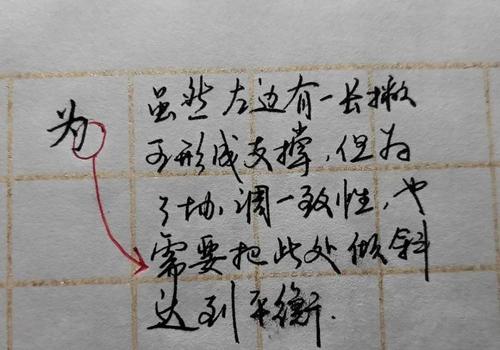 为
虽然左边有一长撇
可形成支撑,但为
了协调一致性,也
需要把此处倾斜
达到平衡.